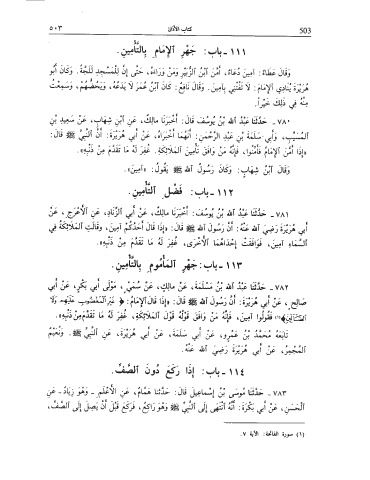 ٥٠٣ كتاب الأذان 503
١١١ - باب: جَهْرِ الإِمَامِ بِالتَّأْمِينِ.
وَقَالَ عَطَاءٌ: آمِينَ دُعَاءٌ، أَمَّنَ ابْنُ الزُّبَيْرِ وَمَنْ وَرَاءَهُ، حَتَّى إِنَّ لِلْمَسْجِدِ لَلَجَّةً. وَكَانَ أَبُو
هُرَيْرَةَ يُنَادِي الإِمَامَ: لَا تَفُتْنِي بِآمِينَ. وَقَالَ نَافِعٌ: كَانَ ابْنُ عُمَرَ لَا يَدَعُهُ، وَيَحُضُّهُمْ، وَسَمِعْتُ
مِنْهُ فِي ذَلِكَ خَيْراً.
٧٨٠ - حَدَّثَنَا عَبْدُ اللهِ بْنُ يُوسُفَ قَالَ: أَخْبَرَنَا مَالِكٌ، عَنِ ابْنِ شِهَابٍ، عَنْ سَعِيدِ بْنِ
المُسَيَّبِ، وَأَبِي سَلَمَةَ بْنِ عَبْدِ الرَّحْمنِ: أَنَّهُمَا أَخْبَرَاهُ، عَنْ أَبِي هُرَيْرَةَ: أَنَّ النَّبِيَّ ﷺ قَالَ:
«إِذَا أَمَّنَ الإِمَامُ فَأَمِّنُوا، فَإِنَّهُ مَنْ وَافَقَ تَأْمِينُهُ تَأْمِينَ المَلَائِكَةِ، غُفِرَ لَهُ مَا تَقَدَّمَ مِنْ ذَنْبِهِ».
وَقَالَ ابْنُ شِهَابٍ: وَكَانَ رَسُولُ اللهِ ﷺ يَقُولُ: «آمِينَ».
١١٢ - باب: فَضْلِ التَّأْمِينِ.
٧٨١ - حَدَّثَنَا عَبْدُ اللهِ بْنُ يُوسُفَ: أَخْبَرَنَا مَالِكٌ، عَنْ أَبِي الزِّنَادِ، عَنِ الأَعْرَجِ، عَنْ
أَبِي هُرَيْرَةَ رَضِيَ اللهُ عَنْهُ: أَنَّ رَسُولَ اللهِ ﷺ قَالَ: «إِذَا قَالَ أَحَدُكُمْ آمِينَ، وَقَالَتِ المَلَائِكَةُ
فِي السَّمَاءِ آمِينَ، فَوَافَقَتْ إِحْدَاهُمَا الأُخْرَى، غُفِرَ لَهُ مَا تَقَدَّمَ مِنْ ذَنْبِهِ».
١١٣ - باب: جَهْرِ المَأْمُومِ بِالتَّأْمِينِ.
٧٨٢ - حَدَّثَنَا عَبْدُ اللهِ بْنُ مَسْلَمَةَ، عَنْ مَالِكٍ، عَنْ سُمَيٍّ، مَوْلَى أَبِي بَكْرٍ، عَنْ أَبِي
صَالِحٍ، عَنْ أَبِي هُرَيْرَةَ: أَنَّ رَسُولَ اللهِ ﷺ قَالَ: «إِذَا قَالَ الإِمَامُ: ﴿غَيْرِ الْمَغْضُوبِ عَلَيْهِمْ وَلَا
الضَّالِّينَ﴾(١) فَقُولُوا آمِينَ، فَإِنَّهُ مَنْ وَافَقَ قَوْلُهُ قَوْلَ المَلَائِكَةِ، غُفِرَ لَهُ مَا تَقَدَّمَ مِنْ ذَنْبِهِ».
تَابَعَهُ مُحَمَّدُ بْنُ عَمْرٍو، عَنْ أَبِي سَلَمَةَ، عَنْ أَبِي هُرَيْرَةَ، عَنِ النَّبِيِّ ﷺ. وَنُعَيْمٌ
المُجْمِرُ، عَنْ أَبِي هُرَيْرَةَ رَضِيَ اللهُ عَنْهُ.
١١٤ - باب: إِذَا رَكَعَ دُونَ الصَّفِّ.
٧٨٣ - حَدَّثَنَا مُوسَى بْنُ إِسْمَاعِيلَ قَالَ: حَدَّثَنَا هَمَّامٌ، عَنِ الأَعْلَمِ - وَهُوَ زِيَادٌ - عَنِ
الحَسَنِ، عَنْ أَبِي بَكْرَةَ: أَنَّهُ انْتَهَى إِلَى النَّبِيِّ ﷺ وَهُوَ رَاكِعٌ، فَرَكَعَ قَبْلَ أَنْ يَصِلَ إِلَى الصَّفِّ،
(١) سورة الفاتحة: الآية ٧.